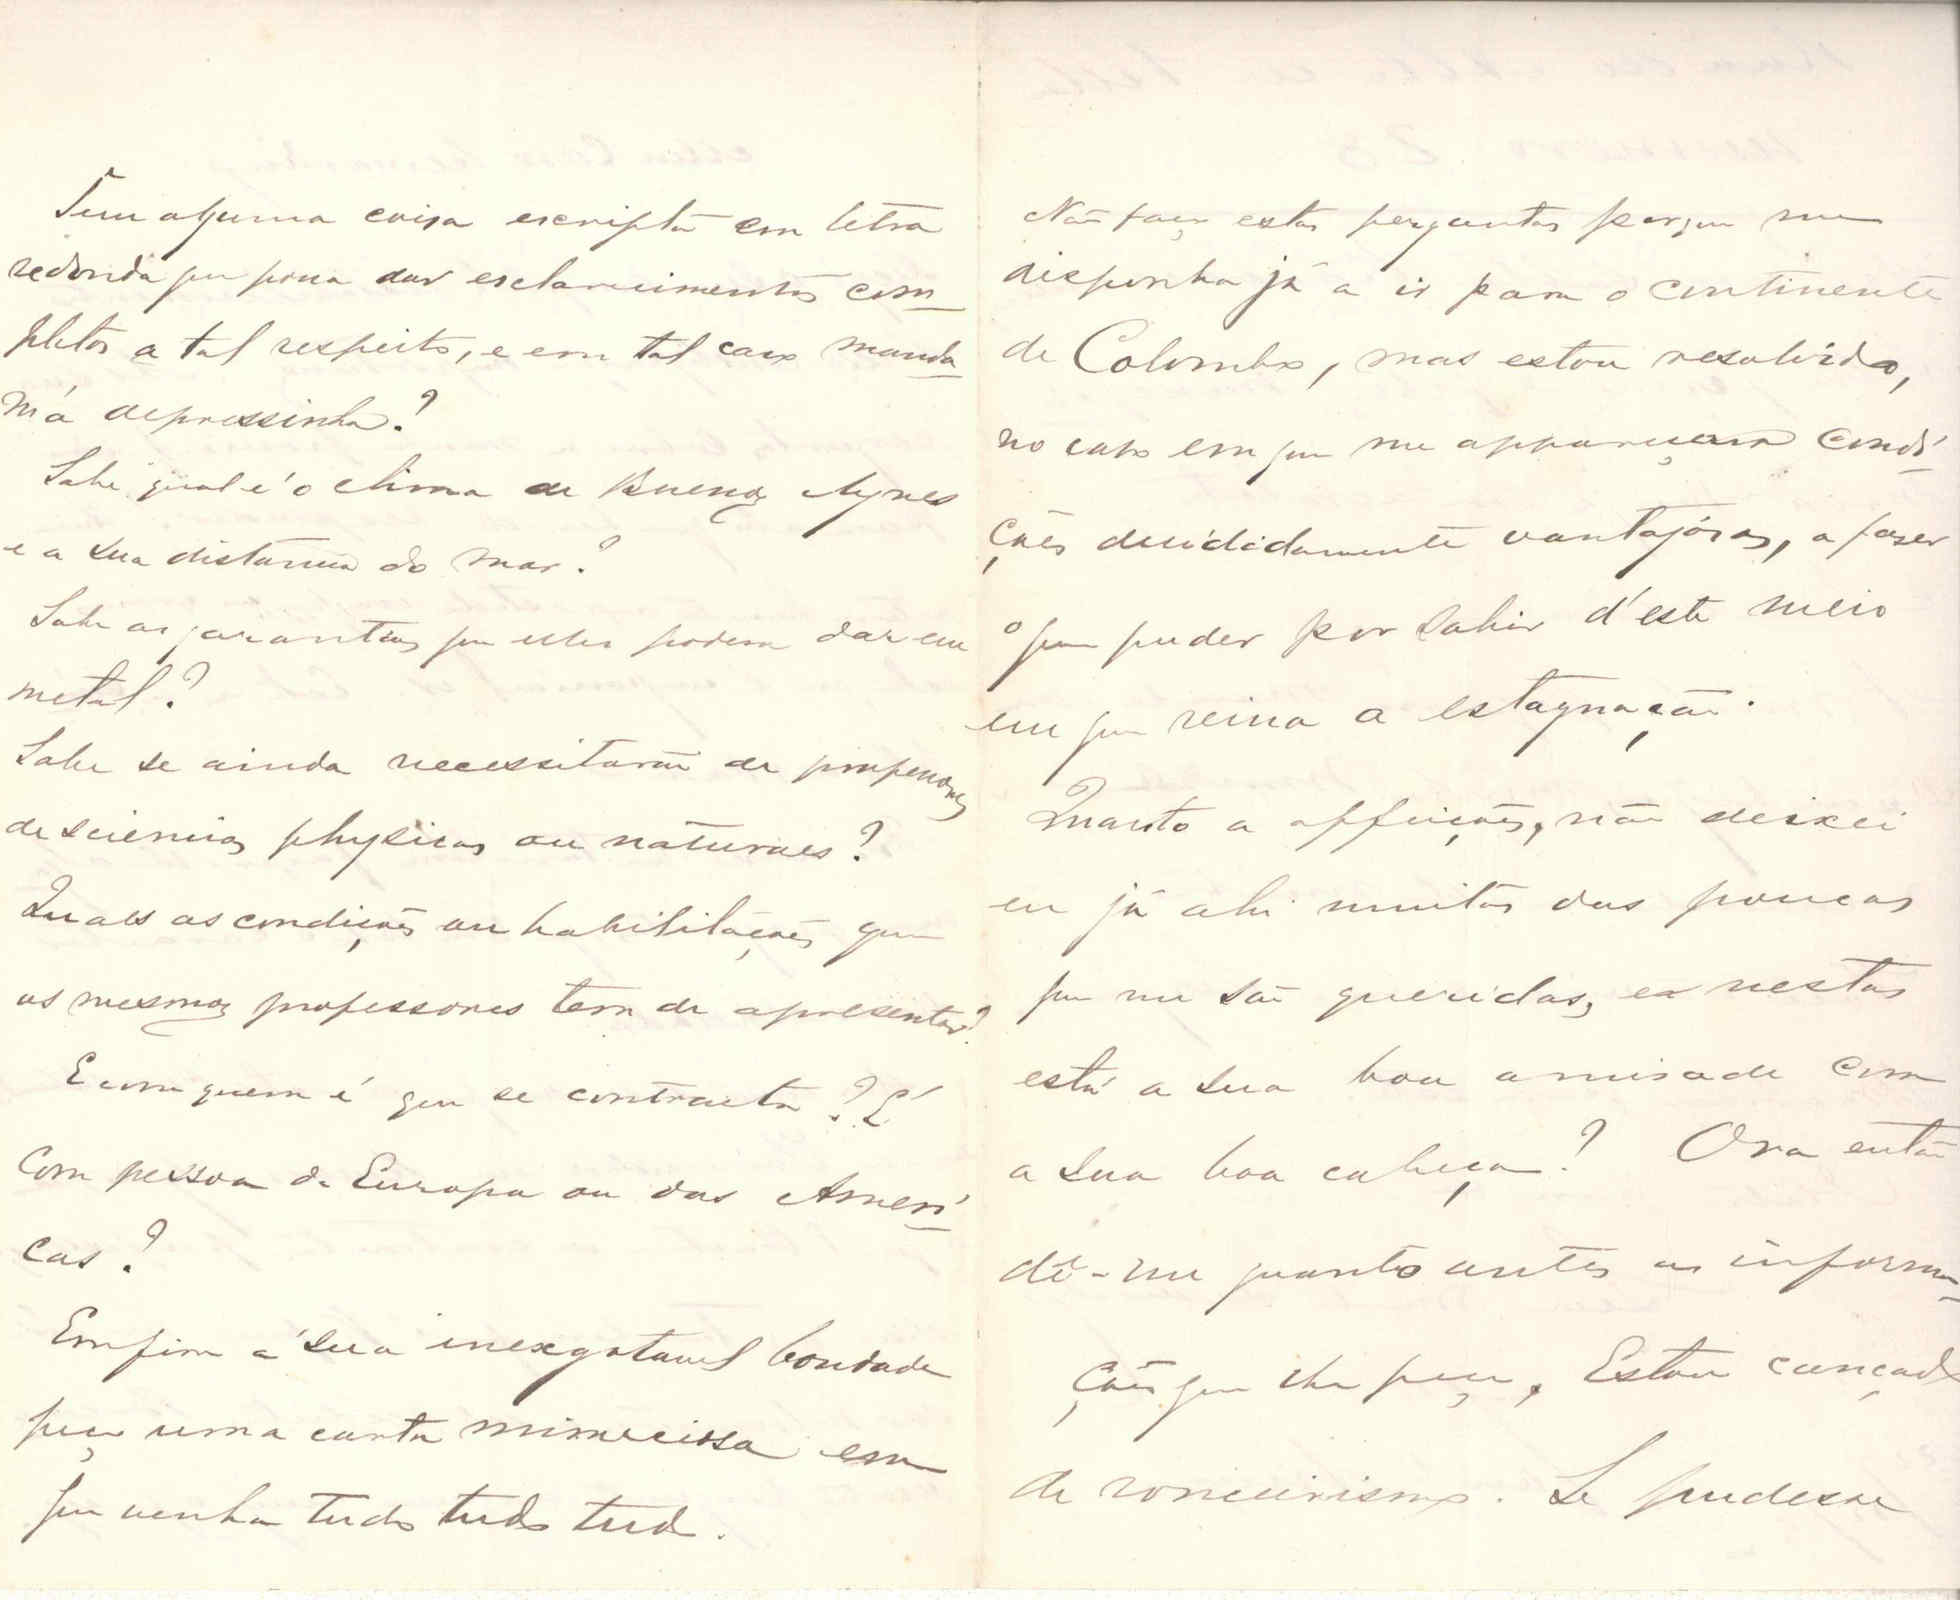 Tem alguma coisa escripta em letra
redonda que possa dar esclarecimentos com-
pletos a tal respeito, e em tal caso manda-
m'a depressinha?
Sabe qual é o clima de Buenos Ayres
e a sua distancia do mar?
Sabe as garantias que elles podem dar em
metal?
Sabe se ainda necessitarão de professores
de sciencias physicas ou naturaes?
Quaes as condições ou habilitações que
os mesmos professores tem de apresentar?
E com quem é que se contracta? É
com pessoa da Europa ou das Ameri-
cas?
Emfim á sua inexgotavel bondade
peço uma carta minuciosa em
que venha tudo tudo tudo.
Não faço estas perguntas porque me
disponha já a ir para o continente
de Colombo, mas estou resolvido,
no caso em que me appareçam condi-
ções decididamente vantajósas, a faser
o que puder por sahir d'este meio
em que reina a estagnação.
Quanto a affeições, não deixei
eu já ahi muitas das poucas
que me são queridas, e nestas
está a sua boa amisade com
a sua boa cabeça? Ora então
dê-me quanto antes as informa-
ções que lhe peço. Estou cançado
de ronceirismo. Se pudesse